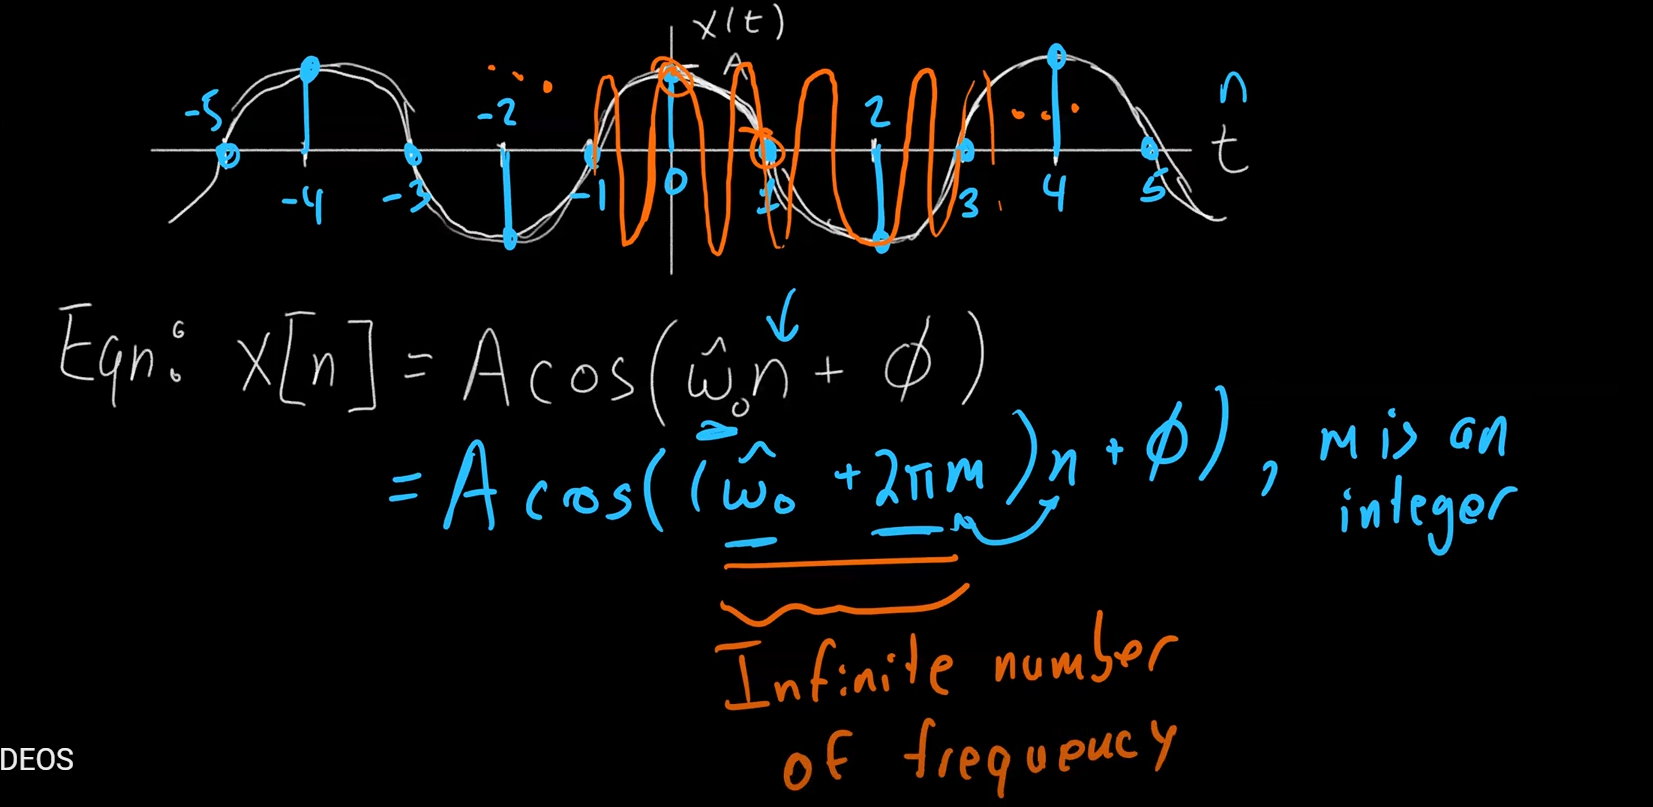 x(t)
A
-5 -2 2 n
t
-4 -3 -1 0 1 3 4 5
Eqn: x[n] = A cos(ω̂₀n + ϕ)
= A cos((ω̂₀ + 2πm)n + ϕ), m is an
integer
Infinite number
of frequency
DEOS